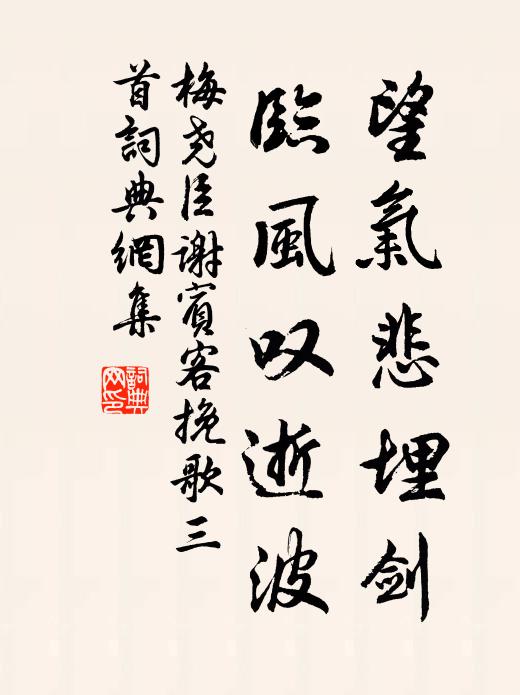 望氣悲埋剑
臨風叹逝波
梅尧臣謝賓客挽歌三
首詞典網集
詞典
网印